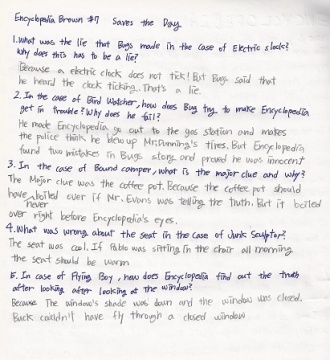 Encyclopedia Brown #7 Saves the Day
1. What was the lie that Bugs made in the case of Electric clock?
Why does this has to be a lie?
Because a electric clock does not tick! But Bugs said that
he heard the clock ticking. That's a lie.
2. In the case of Bird Watcher, how does Bug try to make Encyclopedia
get in trouble? Why does he fail?
He made Encyclopedia go out to the gas station and makes
the police think he blew up Mr. Dunning's tires. But Encyclopedia
found two mistakes in Bugs story and proved he was innocent
3. In the case of Bound camper, what is the major clue and why?
The Major clue was the coffee pot. Because the coffee pot should
have boiled over if Mr. Evans was telling the truth. But it boiled
never
over right before Encyclopedia's eyes.
4. What was wrong about the seat in the case of Junk Sculptor?
The seat was cool. If Pablo was sitting in the chair all morning
the seat should be warm
5. In case of Flying Boy, how does Encyclopedia find out the truth
after looking after looking at the window?
Because The window's shade was down and the window was closed.
Buck couldn't have fly through a closed window